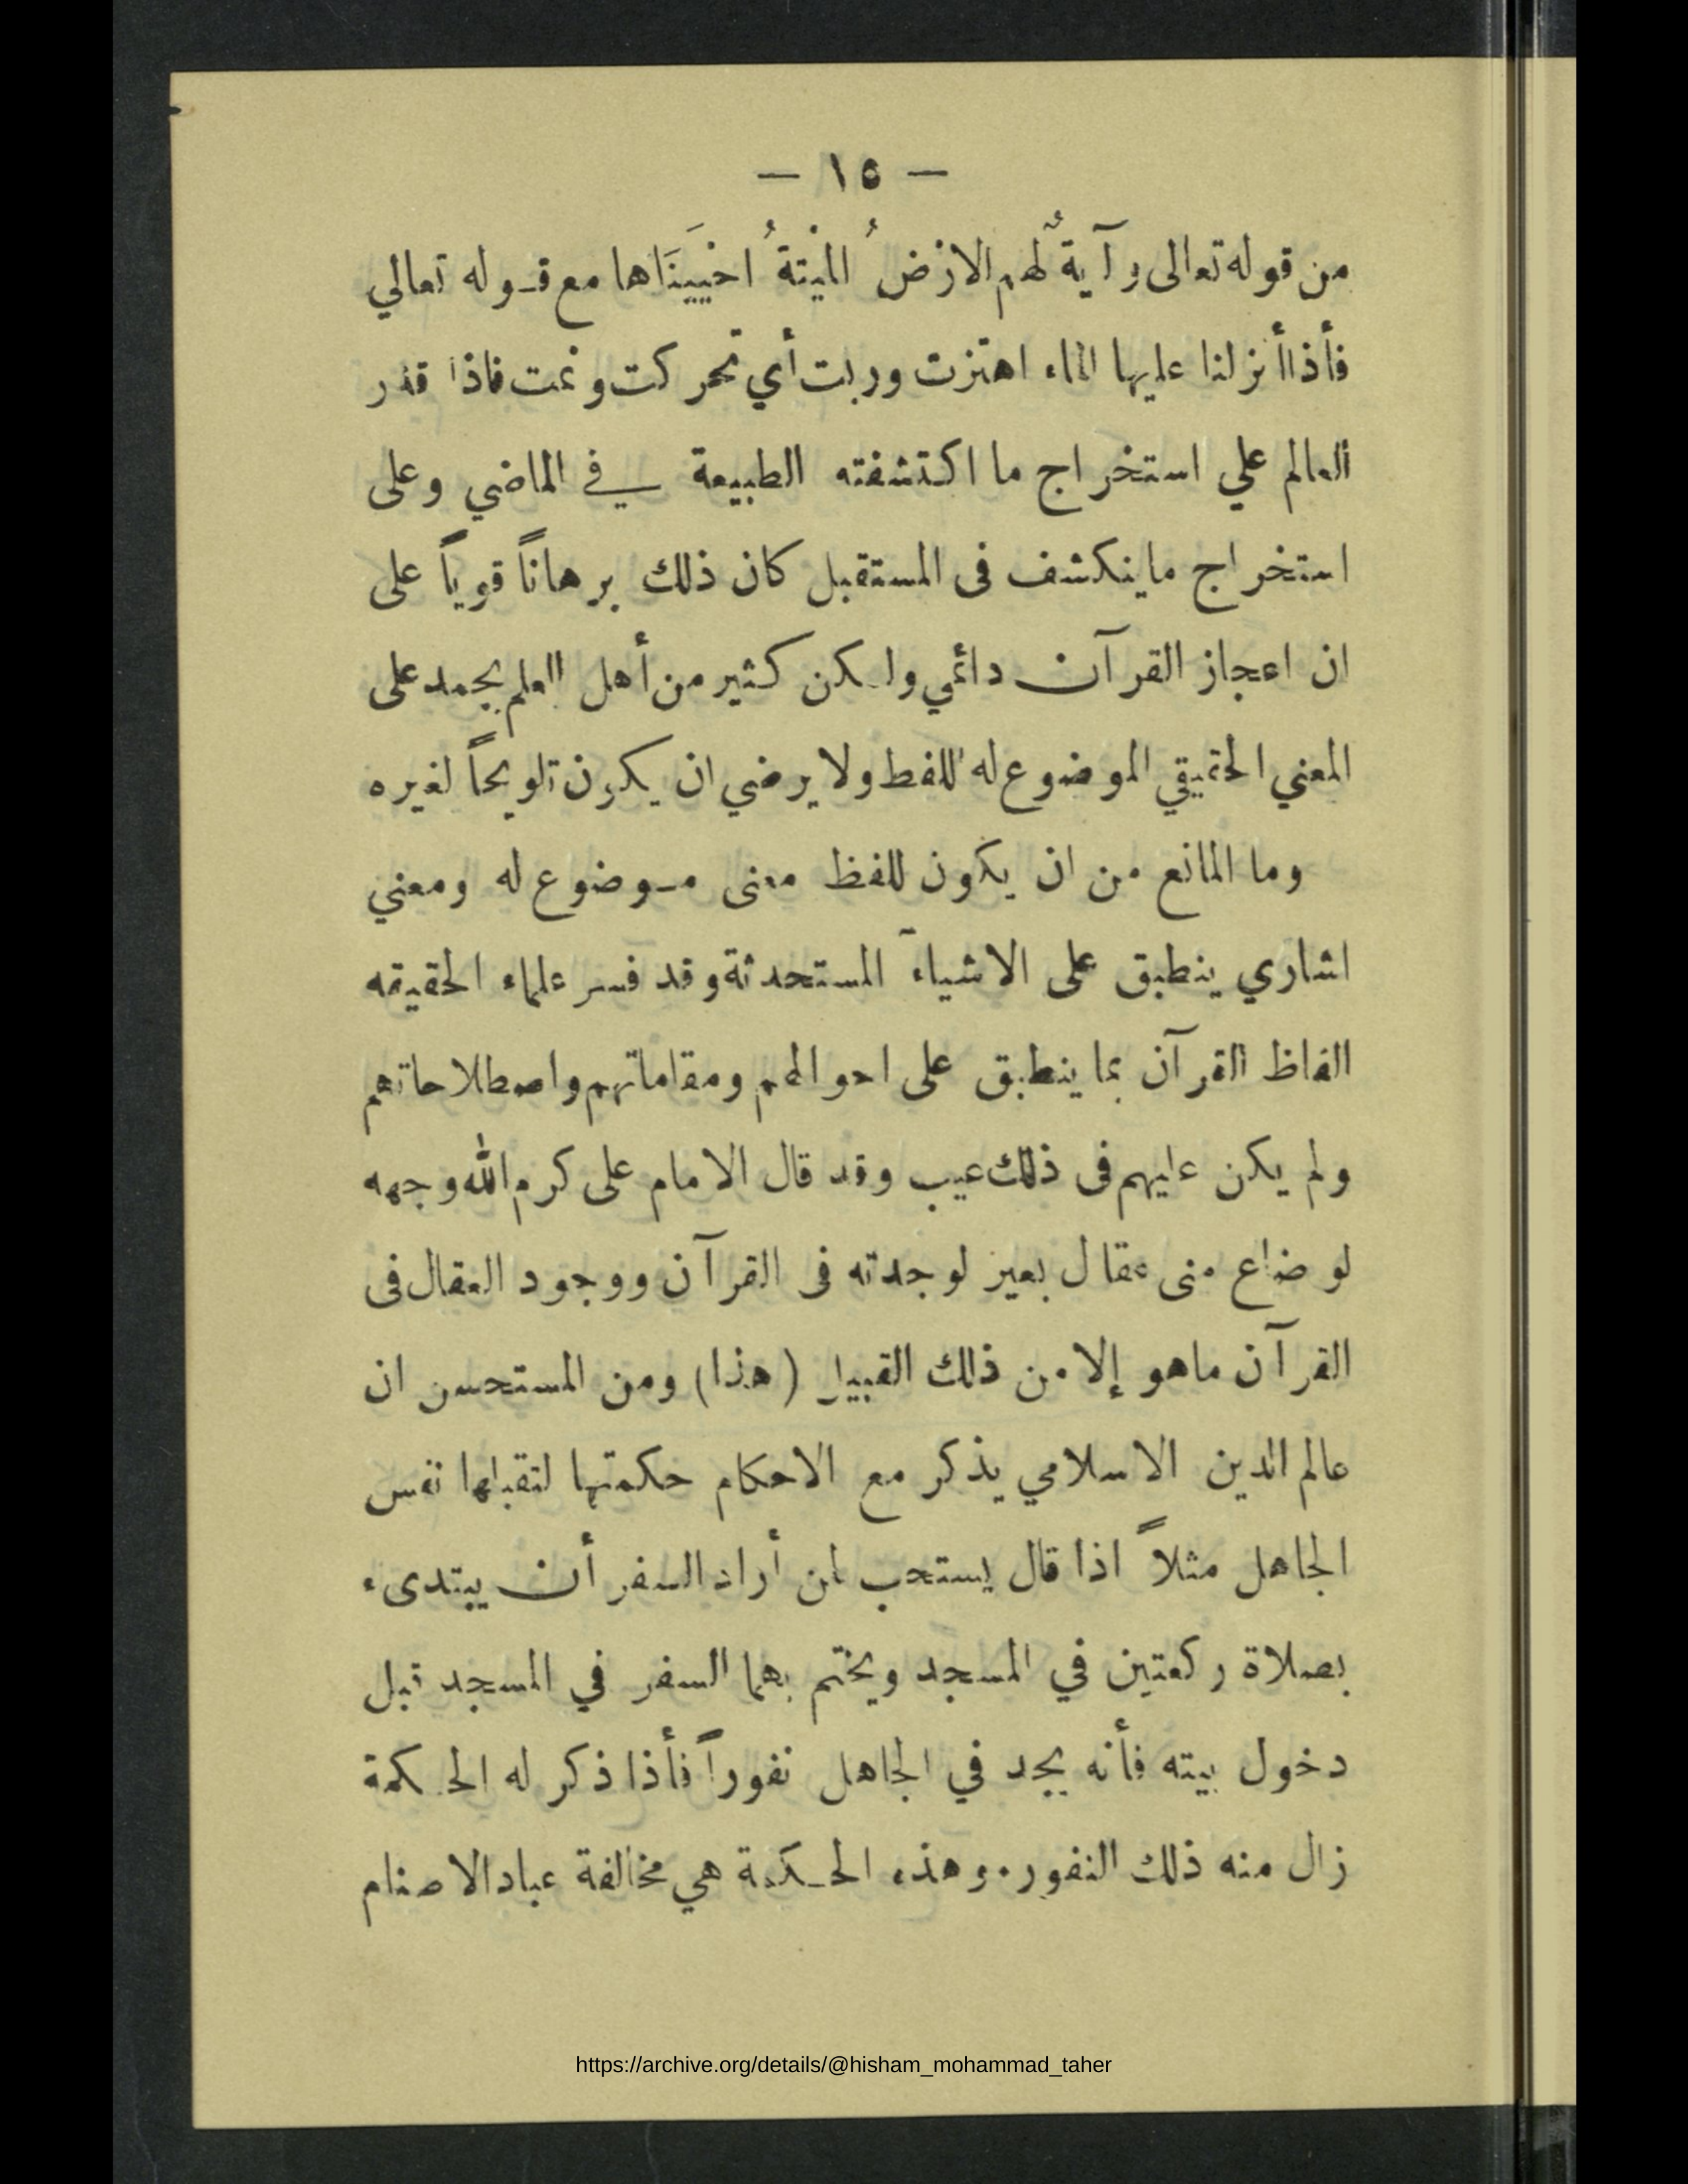 — ١٥ —
من قوله تعالى وآيةٌ لهم الارْضُ الميْتةُ احْيَيْنَاها مع قوله تعالي
فأذا أنزلنا عليها الماء اهتزت وربت أي تحركت ونمت فاذا قدر
العالم علي استخراج ما اكتشفته الطبيعة في الماضي وعلى
استخراج ما ينكشف فى المستقبل كان ذلك برهاناً قوياً على
ان اعجاز القرآن دائمي ولكن كثير من أهل العلم يجمد على
المعني الحقيقي الموضوع له اللفظ ولا يرضي ان يكون تلويحاً لغيره
وما المانع من ان يكون للفظ معنى موضوع له ومعني
اشاري ينطبق على الاشياء المستحدثة وقد فسر علماء الحقيقه
الفاظ القرآن بما ينطبق على احوالهم ومقاماتهم واصطلاحاتهم
ولم يكن عليهم فى ذلك عيب وقد قال الامام على كرم الله وجهه
لو ضاع منى عقال بعير لوجدته فى القرآن ووجود العقال فى
القرآن ماهو إلا من ذلك القبيل (هذا) ومن المستحسن ان
عالم الدين الاسلامي يذكر مع الاحكام حكمتها لتقبلها نفس
الجاهل مثلاً اذا قال يستحب لمن أراد السفر أن يبتدىء
بصلاة ركعتين في المسجد ويختم بهما السفر في المسجد قبل
دخول بيته فأنه يجد في الجاهل نفوراً فأذا ذكر له الحكمة
زال منه ذلك النفور. وهذه الحكمة هي مخالفة عباد الاصنام
https://archive.org/details/@hisham_mohammad_taher